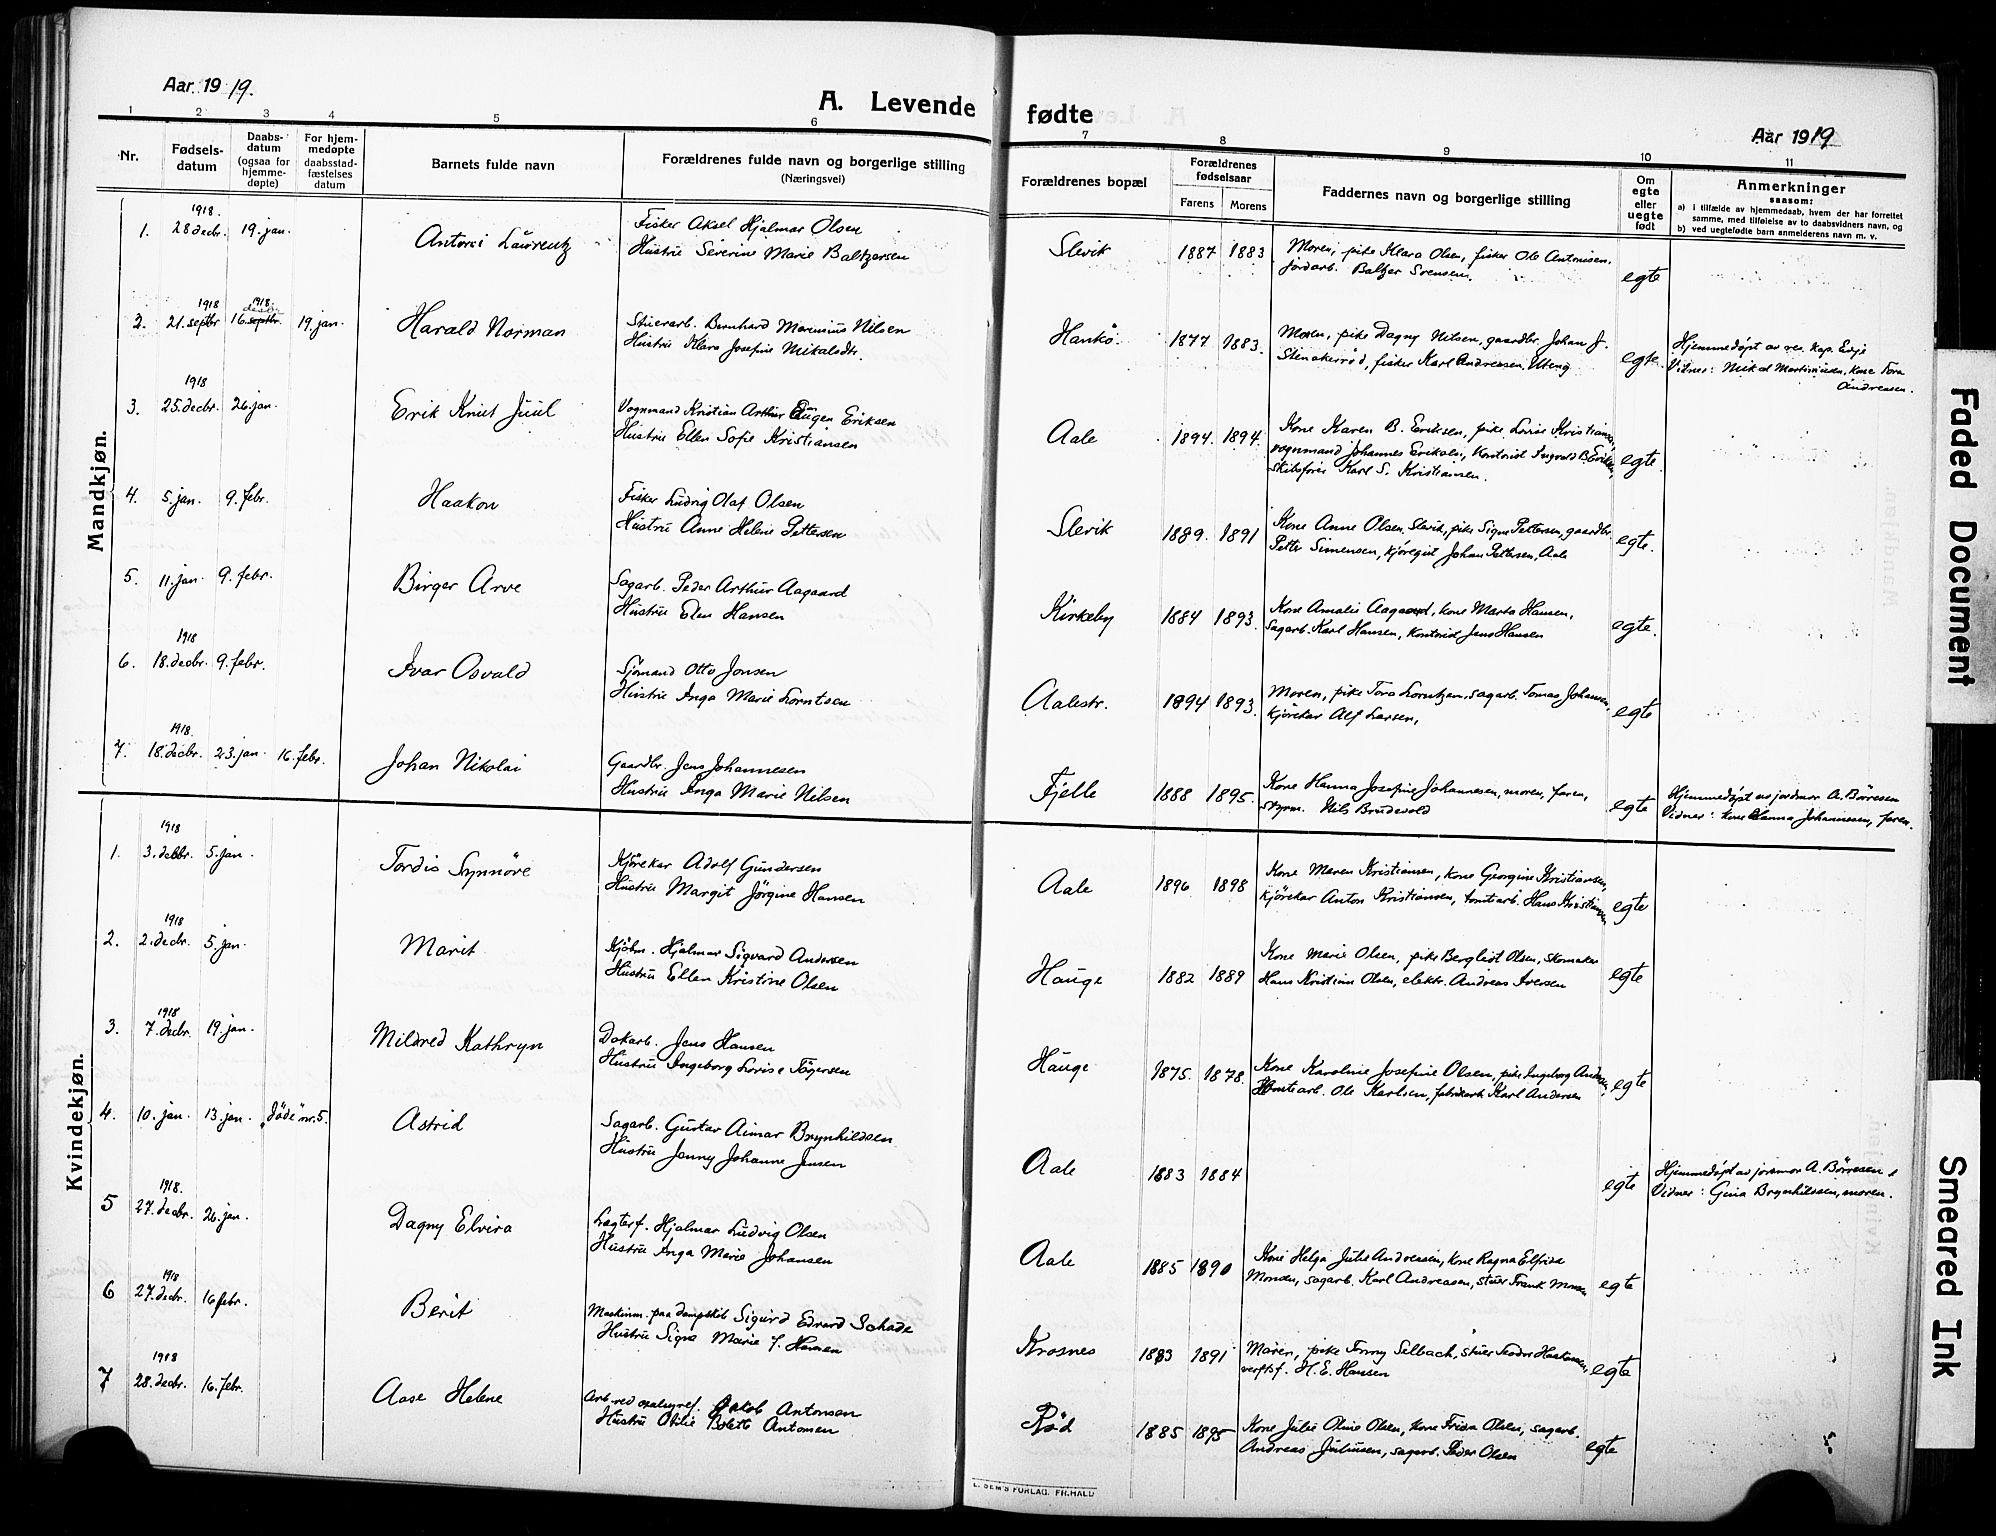 Aar 1919.
A. Levende fødte
Aar 1919
1 2 3 4 5 6 7 8 9 10 11
Nr.
Fødsels-
datum
Daabs-
datum
(ogsaa for
hjemme-
døpte)
For hjem-
medøpte
daabsstad-
fæstelses
datum
Barnets fulde navn
Forældrenes fulde navn og borgerlige stilling
(Næringsvei)
Forældrenes bopæl
Forældrenes
fødselsaar
Farens Morens
Faddernes navn og borgerlige stilling
Om
egte
eller
uegte
født
Anmerkninger
saasom:
a) i tilfælde av hjemmedaab, hvem der har forrettet
samme, med tilføielse av to daabsvidners navn, og
b) ved uegtefødte barn anmelderens navn m. v.
Mandkjøn.
1918.
1. 28 decbr. 19. jan. Antoni Laurentz
Fisker Aksel Hjalmar Olsen
Hustru Severine Marie Baltzersen
Slevik 1887 1883
Moren, pike Klara Olsen, fisker Ole Antonisen,
jordarb. Baltzer Sørensen.
egte
1918 1918
decbr.
2. 21. septbr 16. septbr. 19. jan. Harald Norman
Stuerarb. Bernhard Marinius Nilsen
Hustru Klara Josefine Mikalsdtr.
Hankö. 1877 1883.
Moren, pike Dagny Nilsen, gaardbr. Johan J.
Stenakerrød, fisker Karl Andreasen, Uteng
egte.
Hjemmedøpt av res. kap. Evje
Vidner: Mikal Martiniusen, kone Tora
Andreasen.
1918
3. 25. decbr. 26. jan. Erik Knut Juul
Vognmand Kristian Arthur Eugen Eriksen
Hustru Ellen Sofie Kristiansen
Aale 1894. 1894.
Kone Karen B. Eriksen, pike Lovise Kristiansen,
vognmand Johannes Eriksen, kontorist Ingvald B. Eriksen,
skibsfører Karl S. Kristiansen.
egte.
4. 5. jan. 9. febr. Haakon
Fisker Ludvig Olaf Olsen
Hustru Anne Helene Pettersen
Slevik 1889. 1891
Kone Anne Olsen, Slevik, pike Signe Pettersen, gaardbr.
Petter Simensen, kjøregut Johan Pettersen, Aale
egte.
5. 11. jan. 9. febr. Birger Arve
Sagarb. Peder Arthur Aagaard
Hustru Elen Hansen
Kirkeby 1884 1893.
Kone Amalie Aagaard, kone Marta Hansen,
Sagarb. Karl Hansen, kontorist Jens Hansen
egte.
1918
6. 18. decbr. 9. febr. Ivar Osvald
Sjömand Otto Jensen
Hustru Inga Marie Lorntsen
Aalestr. 1894 1893.
Moren, pike Tora Lorntzen, sagarb. Tomas Johansen,
kjörekar Alf Larsen,
egte
1918.
7. 18. decbr. 23. jan. 16. febr. Johan Nikolai
Gaardbr. Jens Johannesen
Hustru Inga Marie Nilsen
Fjelle 1888 1895.
Kone Hanna Josefine Johannesen, moren, faren,
Nils Brudevold
egte
Hjemmedøpt av jordmor A. Børresen
Vidner: kone Hanna Johannesen, faren.
Kvindekjøn.
1918
1. 3. decbr. 5. jan. Tordis Synnöve
Kjörekar Adolf Gundersen
Hustru Margit Jörgine Hansen
Aale 1896 1898
Kone Maren Kristiansen, kone Georgine Kristiansen,
kjörekar Anton Kristiansen, tomtearb. Hans Kristiansen
egte
1918
2. 2. decbr. 5. jan. Marit
Kjöbm. Hjalmar Sigvard Andersen
Hustru Ellen Kristine Olsen
Hauge 1882 1889
Kone Marie Olsen, pike Bergliot Olsen, skomaker
Hans Kristian Olsen, elektr. Andreas Iversen
egte
1918
3. 7. decbr. 19. jan. Mildred Kathryn
Dokarb. Jens Hansen
Hustru Ingeborg Lovise Tögersen
Hauge 1875. 1878.
Kone Karoline Josefine Olsen, pike Ingeborg Andersen,
tomtearb. Ole Karlsen, fabrikarb. Karl Andersen
egte
4. 10. jan. 13. jan. "döde" nr. 5. Astrid
Sagarb. Gustav Aimar Brynhildsen
Hustru Jenny Johanne Jensen
Aale 1883 1884
egte
Hjemmedøpt av jordmor A. Børresen
Vidner: Gina Brynhildsen, moren.
1918.
5 27. decbr. 26. jan. Dagny Elvira
Lægterf. Hjalmar Ludvig Olsen
Hustru Inga Marie Johansen
Aale 1885 1890
Kone Helga Julie Andreasen, kone Ragna Elfrida
Monsen, sagarb. Karl Andreasen, stuer Frank Monsen
egte
1918
6 27. decbr. 16 febr. Berit
Maskinm. paa dampskib Sigurd Edvard Schade
Hustru Signe Marie f. Hansen
Krosnes 1883 1891
Moren, pike Fanny Selbach, stuer Hartvigsen,
verftsf. H. E. Hansen
egte
1918
7 28. decbr. 16. febr. Aase Helene
Arb. ved Jakob Antonsen
Hustru Otilie Bolette Antonsen
Rød 1885 1895
Kone Julie Oline Olsen, kone Frida Olsen, sagarb.
Andreas Juliusen, sagarb. Peder Olsen
egte
E. SEM'S FORLAG, FR.HALD
Faded Document
Smeared Ink